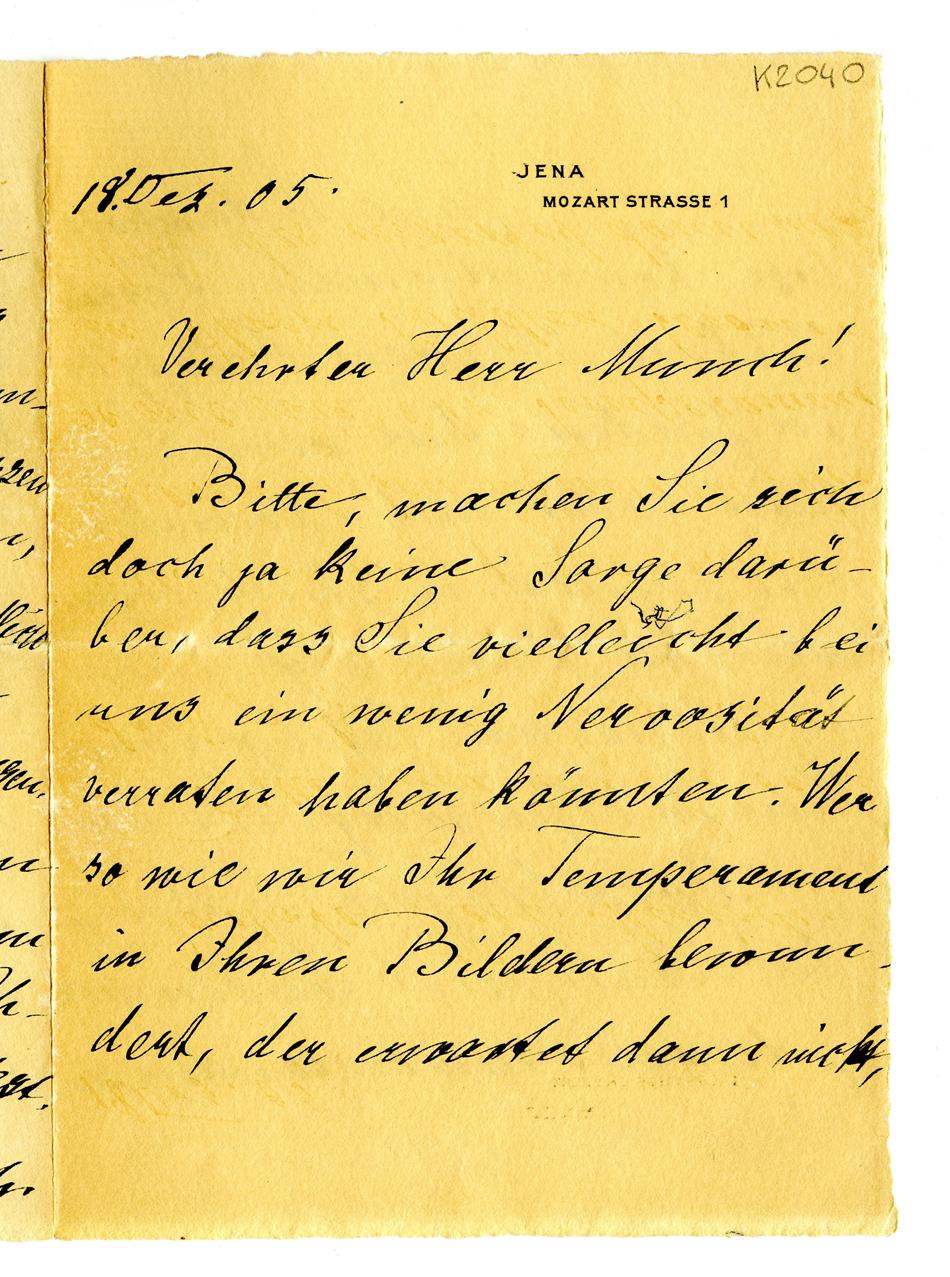 K2040
18. Dez. 05.
JENA
MOZART STRASSE 1
Verehrter Herr Munch!
Bitte, machen Sie sich
doch ja keine Sorge darü-
ber, dass Sie vielleicht bei
uns ein wenig Nervosität
verraten haben könnten. Wer
so wie wir Ihr Temperament
in Ihren Bildern bewun-
dert, der erwartet dann nicht,